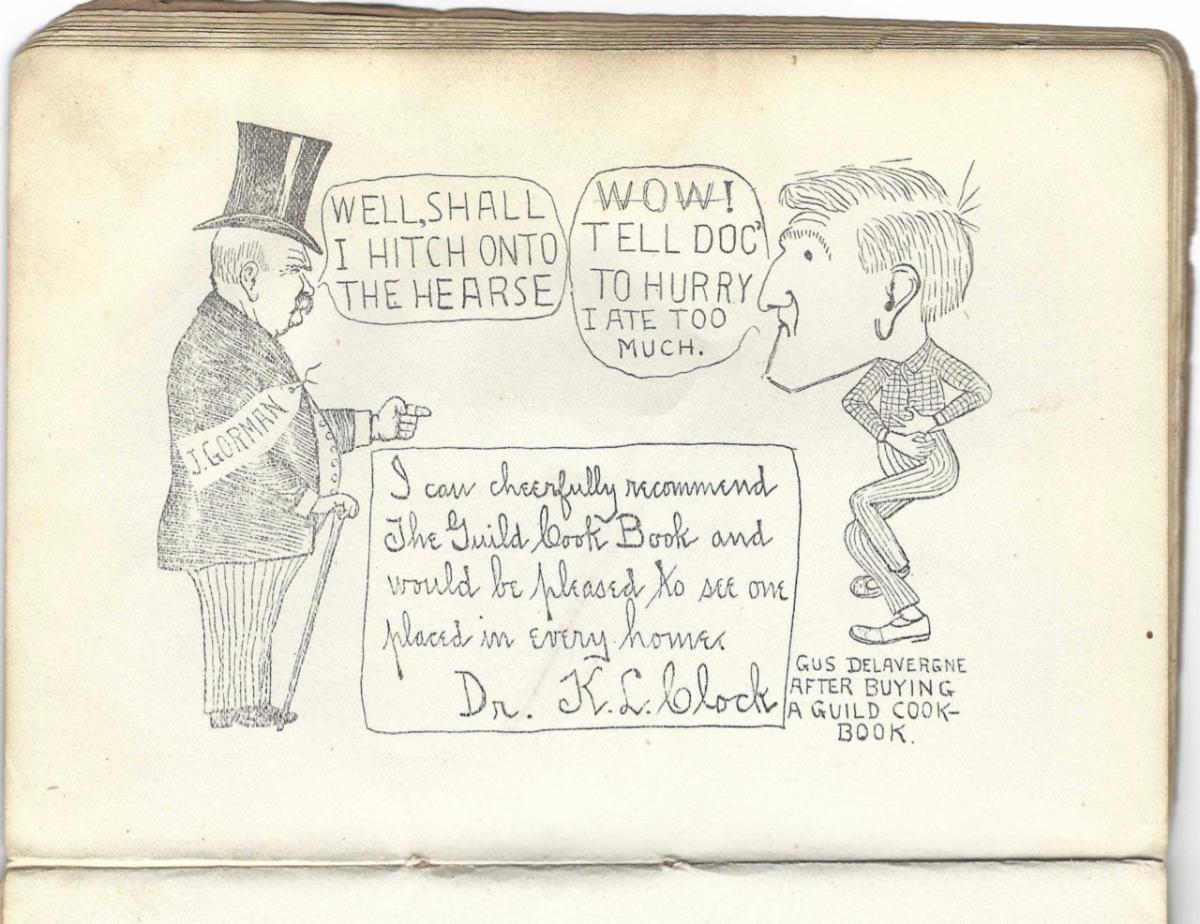 WELL, SHALL
I HITCH ONTO
THE HEARSE
WOW!
TELL DOC'
TO HURRY
I ATE TOO
MUCH.
J. GORMAN
I can cheerfully recommend
The Guild Cook Book and
would be pleased to see one
placed in every home.
Dr. K. L. Clock
GUS DELAVERGNE
AFTER BUYING
A GUILD COOK-
BOOK.